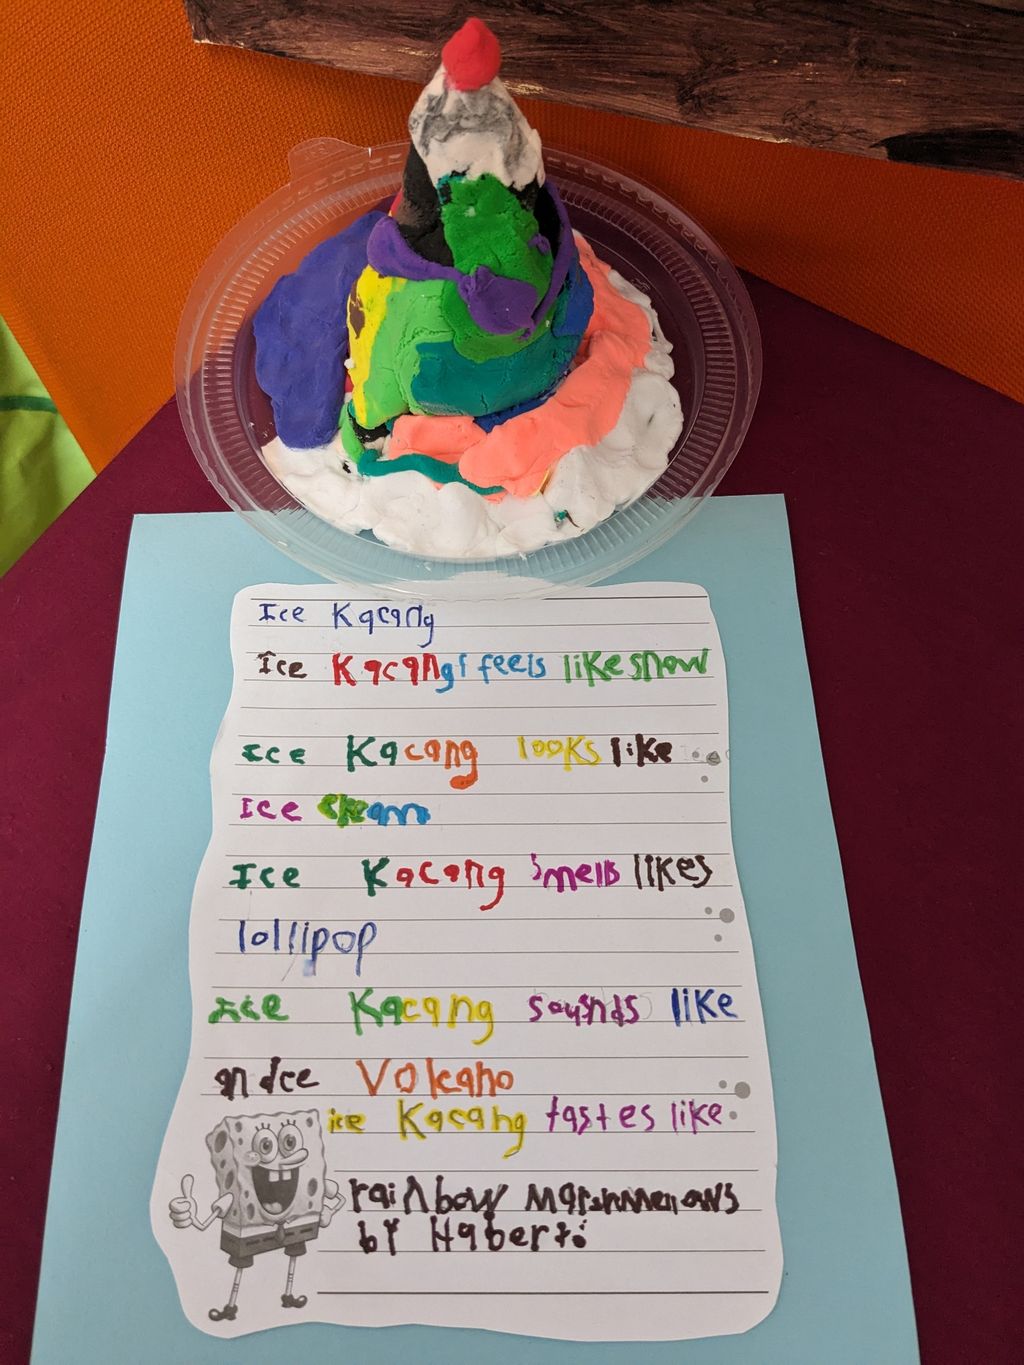 Ice Kacang
Ice Kacang feels like snow
Ice Kacang looks like
Ice cream
Ice Kacang smells likes
lollipop
Ice Kacang sounds like
an Ice Volcano
ice Kacang tastes like
rainbow
by Haberto